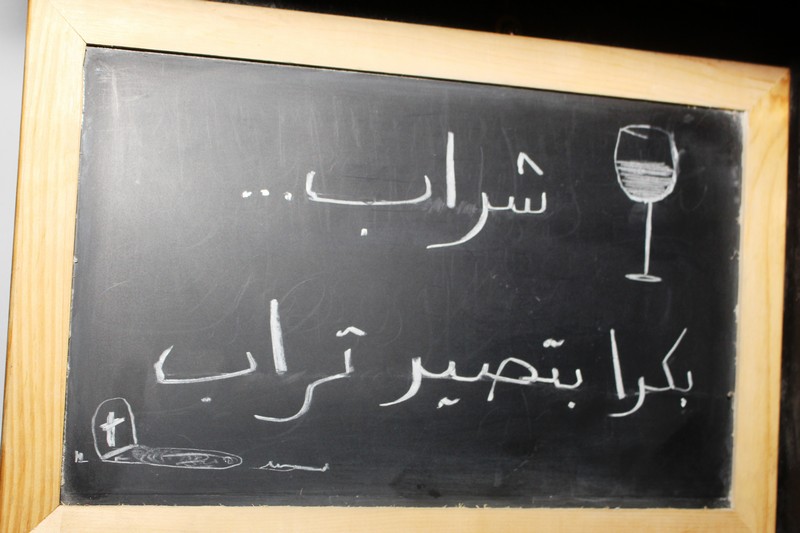 شراب...
بكرا بتصير تراب